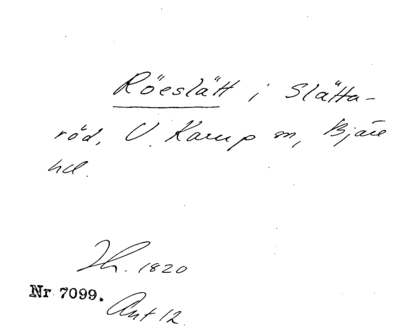 Röeslätt i Slätta-
röd, V. Karup sn, Bjäre
hd.
Th. 1820
Nr 7099.
Ant 12.